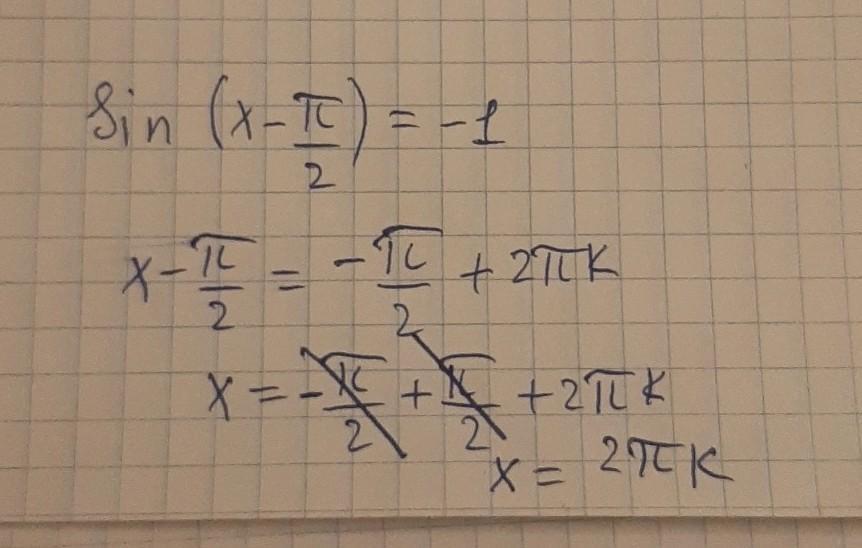 Sin (x - π/2) = -1
x - π/2 = - π/2 + 2πk
x = - π/2 + π/2 + 2πk
x = 2πk